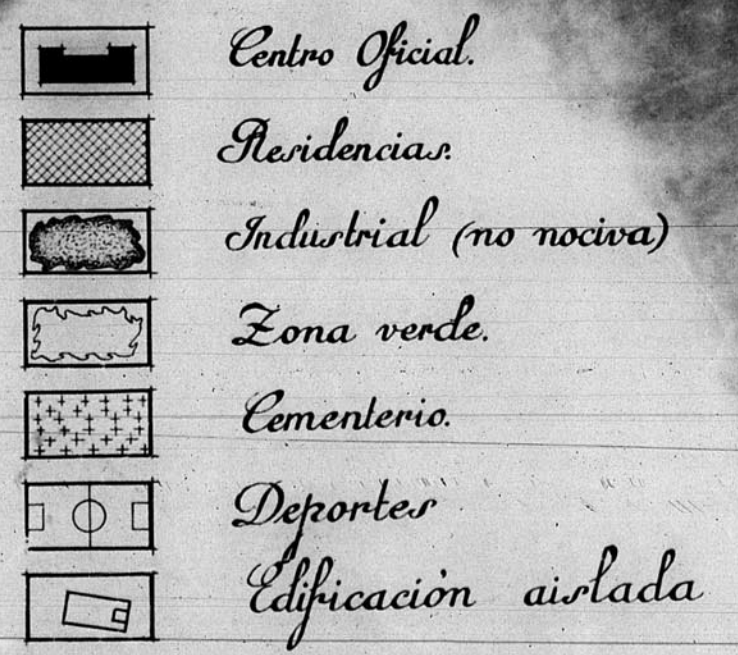 Centro Oficial.
Residencias.
Industrial (no nociva)
Zona verde.
Cementerio.
Deportes
Edificación aislada